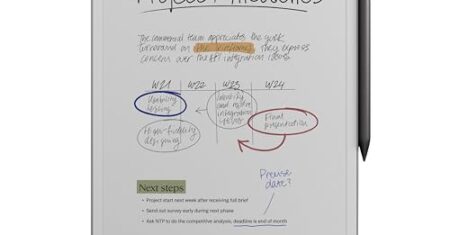 Project Milestones
The commercial team appreciates the quick
turnaround on the wireframes, they express
concern over the API integration ideas
W21 W22 W23 W24
Usability
testing
integration
Final
presentation
Hi-gh-fidelity
designing
Precise
date?
Next steps
• Project start next week after receiving full brief
• Send out survey early during next phase
• Ask NTP to do the competitive analysis, deadline is end of month